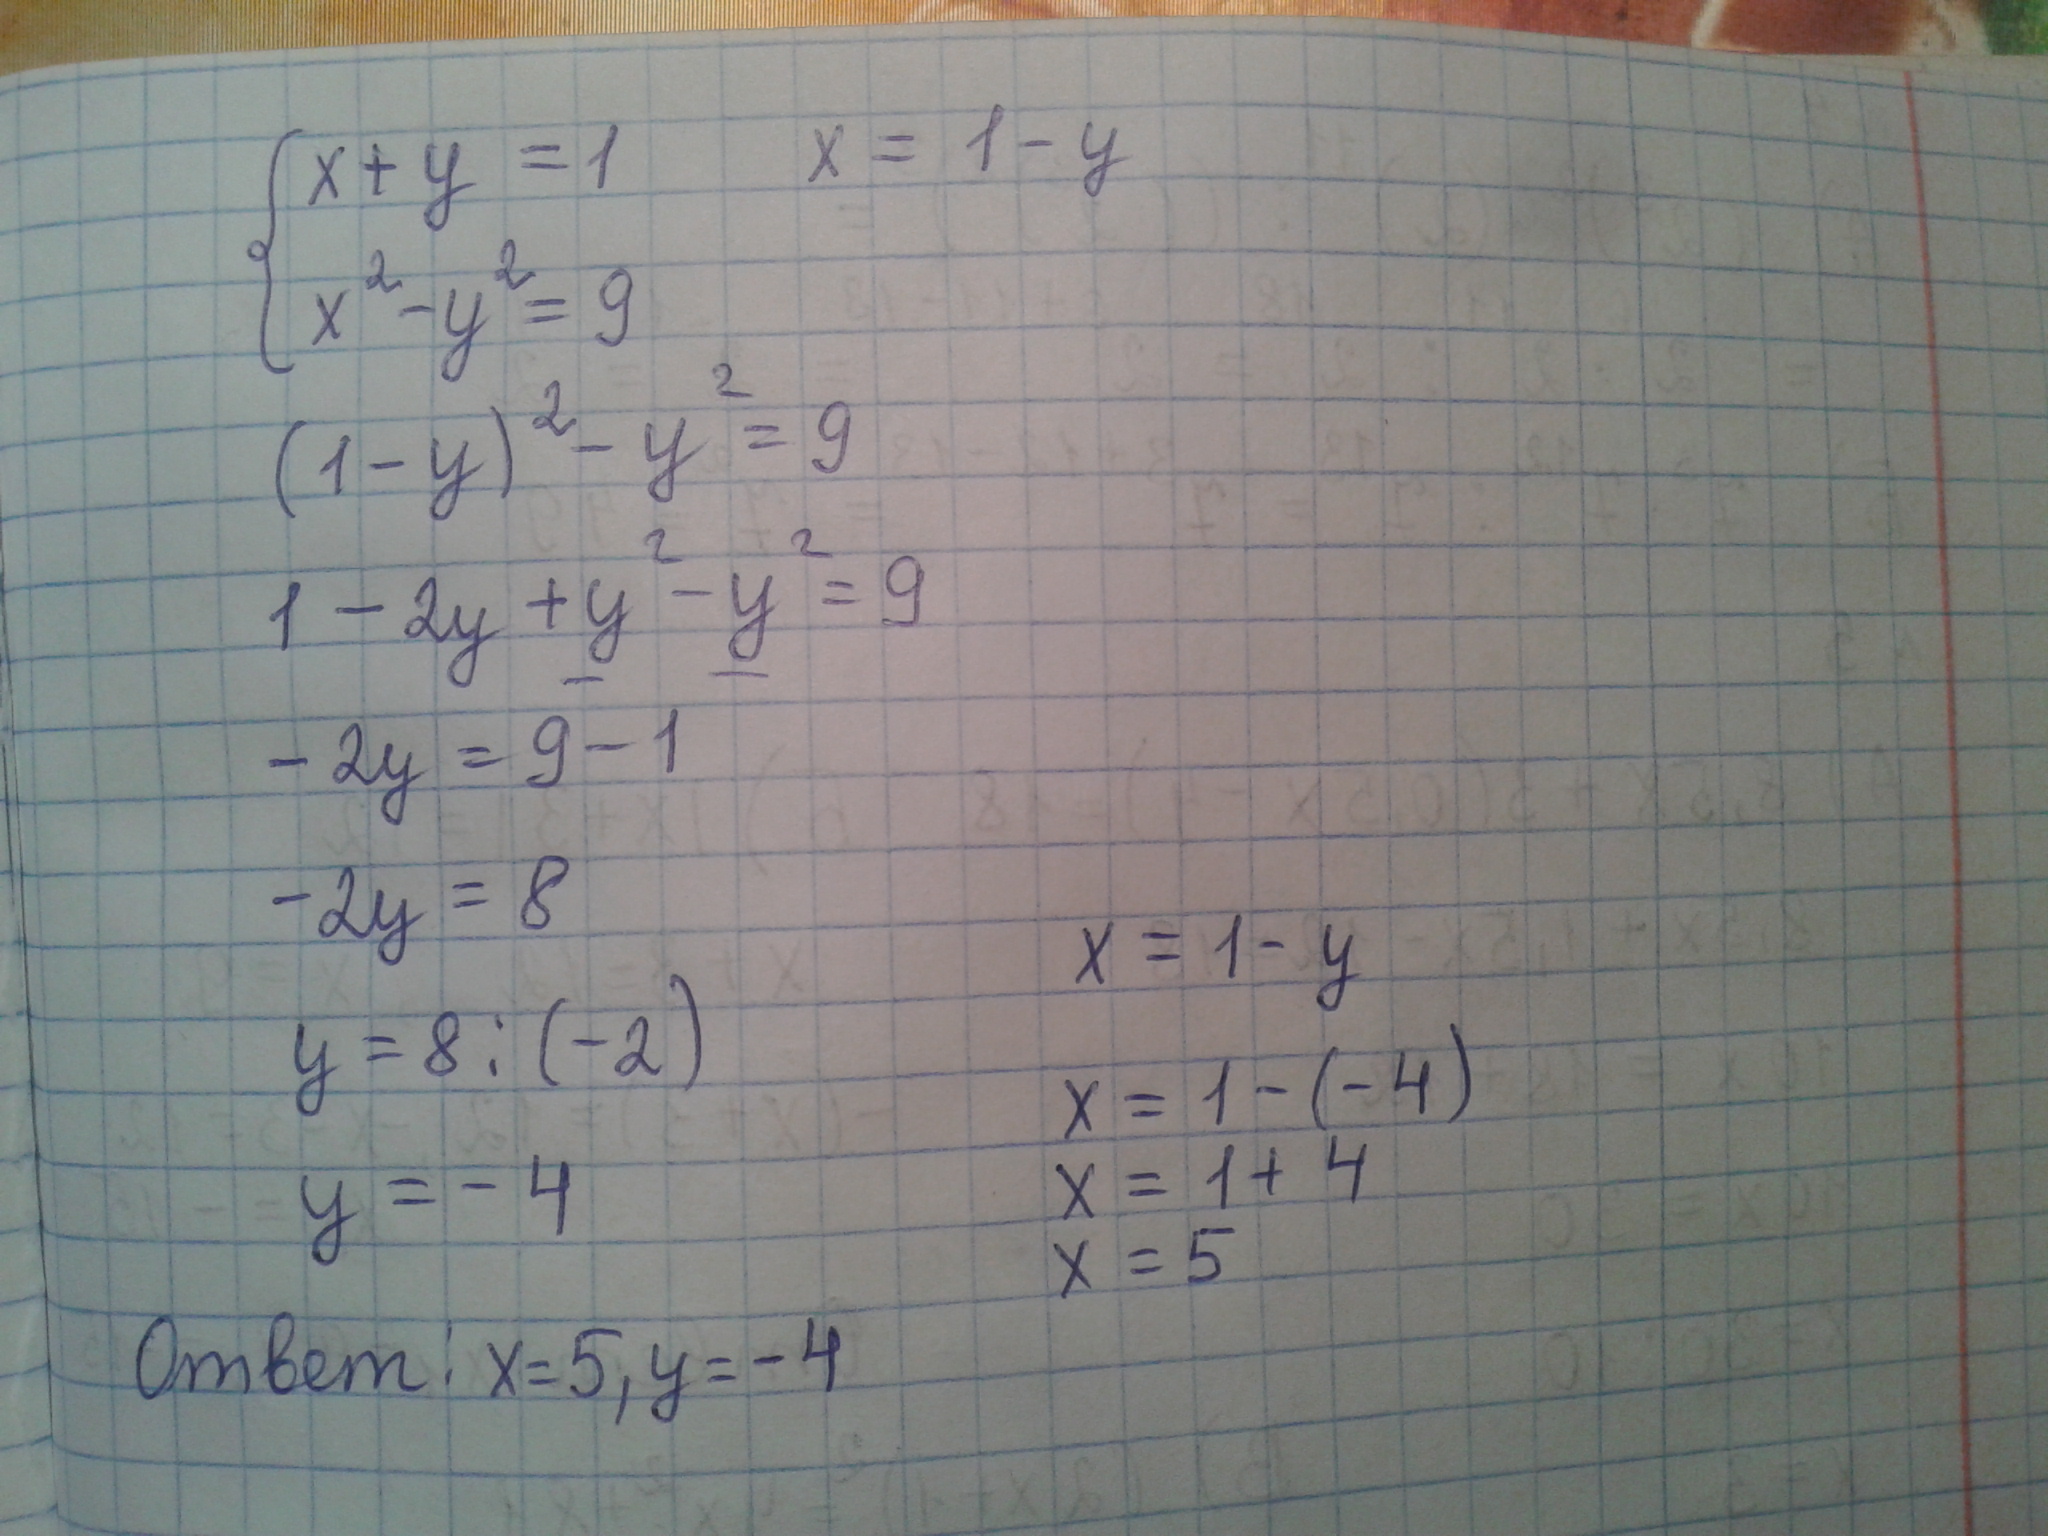 x + y = 1    x = 1 - y
x² - y² = 9
(1 - y)² - y² = 9
1 - 2y + y² - y² = 9
-2y = 9 - 1
-2y = 8
y = 8 : (-2)
y = -4
x = 1 - y
x = 1 - (-4)
x = 1 + 4
x = 5
Ответ: x = 5, y = -4